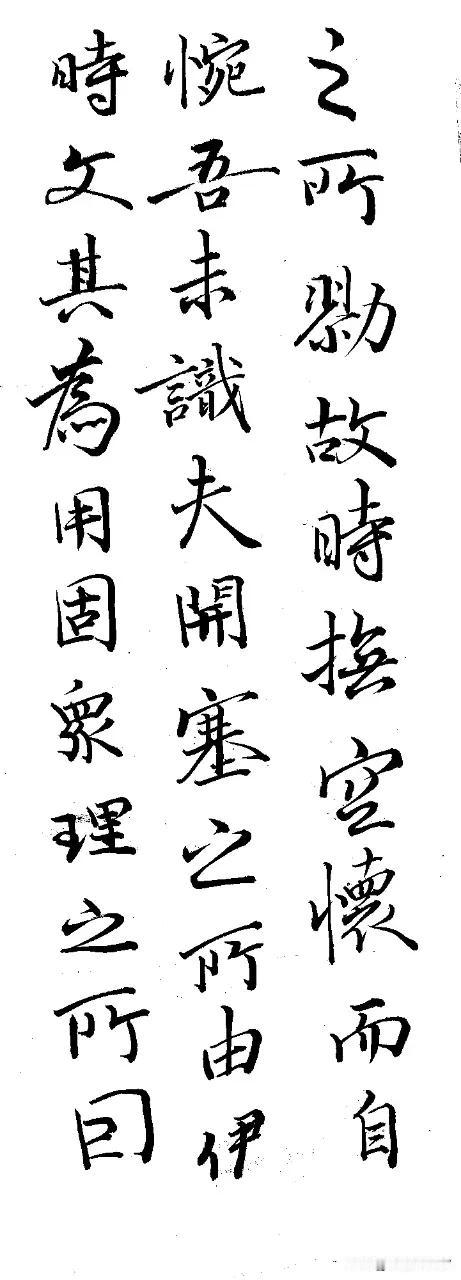 之所勠故時撫空懷而自
惋吾未識夫開塞之所由伊
時文其為用固眾理之所囙